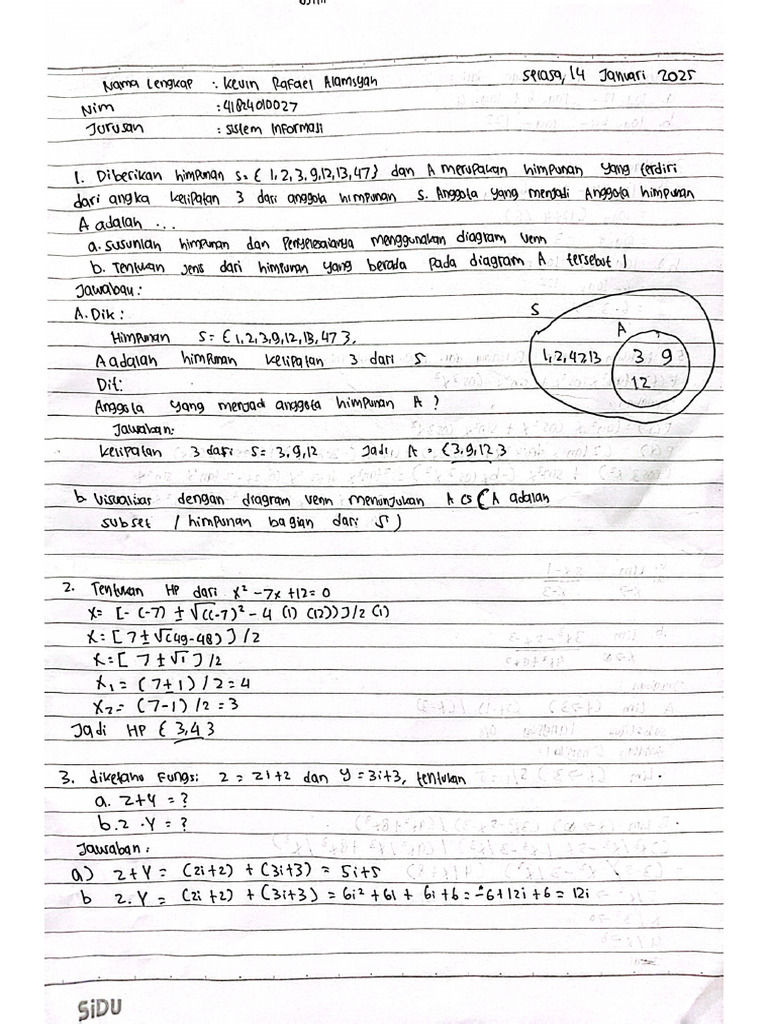 Nama Lengkap : Kevin Rafael Alamsyah
Selasa, 14 Januari 2025
Nim : 41824010027
Jurusan : Sistem Informasi
1. Diberikan himpunan S = { 1, 2, 3, 9, 12, 13, 47 } dan A merupakan himpunan yang terdiri
dari angka kelipatan 3 dari anggota himpunan S. Anggota yang menjadi Anggota himpunan
A adalah ...
a. susunlah himpunan dan Penyelesaianya menggunakan diagram venn
b. Tentukan jenis dari himpunan yang berada pada diagram A tersebut !
Jawaban :
A. Dik :
Himpunan S = { 1, 2, 3, 9, 12, 13, 47 }.
A adalah himpunan kelipatan 3 dari S
Dit :
Anggota yang menjadi anggota himpunan A ?
Jawaban :
kelipatan 3 dari S = 3, 9, 12 Jadi A = { 3, 9, 12 }
S
A
1, 2, 47 13
3 9
12
b. Visualisai dengan diagram venn menunjukan A cs ( A adalah
subset / himpunan bagian dari S )
2. Tentukan HP dari x² - 7x + 12 = 0
x = [- (-7) ± √((-7)² - 4 (1) (12))] / 2 (1)
x = [ 7 ± √(49-48) ] / 2
x = [ 7 ± √1 ] / 2
x₁ = (7+1) / 2 = 4
x₂ = (7-1) / 2 = 3
Jadi HP { 3,4 }
3. diketahui Fungsi z = 2i+2 dan y = 3i+3, tentukan
a. z+y = ?
b. z . y = ?
Jawaban :
a) z+y = (2i+2) + (3i+3) = 5i+5
b z.y = (2i+2) + (3i+3) = 6i² + 6i + 6i + 6 = -6 + 12i + 6 = 12i
SiDU